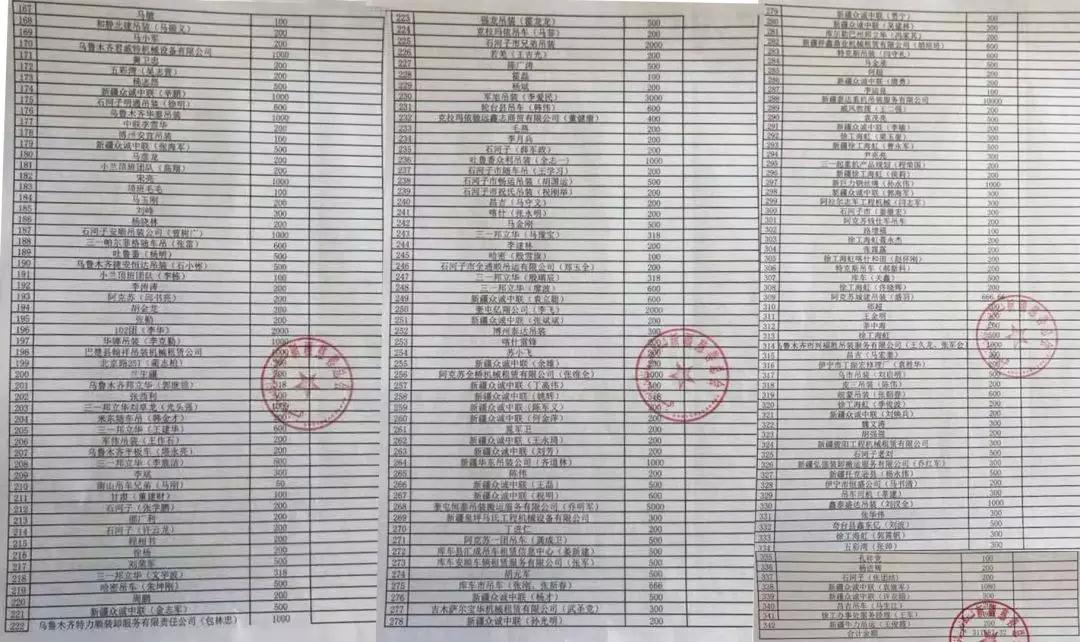 167 马健 100
168 和静北建吊装（马振义） 200
169 马小军 200
170 乌鲁木齐君威特机械设备有限公司 1000
171 黄卫忠 200
172 五彩湾（吴志普） 200
173 杨志昌 500
174 新疆众诚中联（辛鹏） 1000
175 石河子明通吊装（徐明） 600
176 乌鲁木齐华泰吊装 1000
177 中联李雪华 200
178 博州安宜吊装 100
179 新疆众诚中联（张海军） 500
180 马彦龙 200
181 小兰顶班团队（高翔） 200
182 宋亮 1000
183 顶班毛毛 100
184 马玉刚 200
185 刘峰 300
186 杨晓林 200
187 石河子安顺吊装公司（曾树广） 1000
188 三一帕尔菲格随车吊（张雷） 600
189 吐鲁番（杨明） 500
190 乌鲁木齐捷安恒达吊装（石小彬） 500
191 小兰顶班团队（李栋） 100
192 李涛涛 200
193 阿克苏（邱书亮） 200
194 胡金龙 200
195 张勤 200
196 102团（李华） 2000
197 华娜吊装（李克勤） 1000
198 巴楚县翰祥吊装机械租赁公司 1000
199 北京路25T（蔺志柏） 200
200 兰生疆
201 乌鲁木齐邦立华（郭世锦） 318
202 张西利 500
203 三一邦立华刘卓龙（光头强）
204 米东随车吊（韩金才） 200
205 三一邦立华（王建华） 600
206 军伟吊装（王作石） 200
207 乌鲁木齐平板车（塔永亮） 200
208 三一邦立华（李震洁） 600
209 李斌 300
210 南山吊车兄弟（马刚） 50
211 甘肃（董建财） 100
212 石河子（张学鹏） 200
213 邵广利 200
214 石河子（许云龙） 200
215 程相书 200
216 徐杨 200
217 刘荣军 500
218 三一邦立华（文学波） 318
219 哈密吊车（朱坤刚） 300
220 周鹏 200
221 新疆众诚中联（金志军） 500
222 乌鲁木齐特力顺装卸服务有限责任公司（包林忠） 1000
223 强龙吊装（霍龙龙） 500
224 克拉玛依吊车（马黎） 200
225 石河子市兄弟吊装 2000
226 若羌（王吉光） 200
227 陈广涛 500
228 翟磊 100
229 杨斌 200
230 军旭吊装（李爱民） 3000
231 轮台县吊车（韩伟） 600
232 克拉玛依驰远鑫志商贸有限公司（董健康） 400
233 毛燕 200
234 李月兵 200
235 石河子（薛军政） 200
236 吐鲁番众利吊装（金志一） 1000
237 石河子市随车吊（王学习） 200
238 石河子市畅运吊装（胡国运） 500
239 石河子市祝氏吊装（祝刚举） 200
240 昌吉（马守义） 200
241 喀什（张永明） 200
242 马金刚 500
243 三一邦立华（马豫宝） 318
244 李建林 200
245 哈密（殷雪旗） 100
246 石河子市全通顺吊运有限公司（郑玉全） 200
247 三一邦立华（殷瑞辰） 318
248 三一邦立华（廖波） 600
249 新疆众诚中联（袁立聪） 600
250 奎屯亿翔公司（李飞） 2000
251 新疆众诚中联（张斌斌） 200
252 博州泰达吊装 300
253 喀什雷锋 200
254 苏小飞 200
255 新疆众诚中联（余雄） 200
256 阿克苏全桥机械租赁有限公司（张维全） 1000
257 新疆众诚中联（丁高伟） 500
258 新疆众诚中联（姚辉） 318
259 新疆众诚中联（陈军义） 500
260 新疆众诚中联（何金萍） 200
261 晁军卫 200
262 新疆众诚中联（王永琦） 200
263 新疆众诚中联（刘芳） 200
264 新疆华东吊装公司（齐道林） 1000
265 陈伟 200
266 新疆众诚中联（王磊） 500
267 新疆众诚中联（祝明） 600
268 奎屯恒泰吊装搬运服务有限公司（乔明军） 5000
269 新疆泉坪马氏工程机械设备有限公司 300
270 丁进仁 200
271 阿克苏一团吊车（龚成卫） 500
272 库车县汇成吊车租赁信息中心（姜新建） 500
273 库车安顺车辆租赁有限公司（张军） 500
274 胡元军 500
275 库车市吊车（张刚、张新春） 666
276 新疆众诚中联（杨才） 200
277 吉木萨尔宝华机械租赁有限公司（武圣竞） 300
278 新疆众诚中联（孙光明） 200
279 新疆众诚中联（贾宁） 300
280 新疆众诚中联（吴建林） 300
281 库尔勒巴州邦立华（冯家其） 200
282 600
283 特克斯吊车（闫守礼） 600
284 马金录 500
285 何超 200
286 新疆众诚中联（唐勇） 200
287 李运良 100
288 新疆泰达重机吊装服务有限公司 10000
289 威风救援（王二强） 200
290 袁茂亮 500
291 新疆众诚中联（李敏） 200
292 徐工海虹（梁玉堂） 300
293 新疆徐工海虹（曹永军） 500
294 尹克亮 300
295 三一起重机产品规划（程荣国） 200
296 新疆徐工海虹（侯莉） 200
297 新巨力钢丝绳（孙永伟） 1000
298 新疆众诚中联（郭海军） 500
299 阿拉尔志军工程机械（闫志军） 300
300 石河子市（姜继宏） 300
301 阿克苏钱仕军吊车 500
302 路增福 100
303 徐工海虹聂永杰 200
304 张露露 200
305 徐工海虹喀什和田（赵怀刚） 200
306 特克斯吊车（郝新科） 200
307 库车（关鑫） 500
308 徐工海虹（佟晓辉） 200
309 阿克苏城建吊装（盛羽） 666.66
310 邵超 200
311 王金明 200
312 茶中海 200
313 徐工海虹 500
314 乌鲁木齐市兴福祖吊装服务有限公司（王久龙、张军会）
315 昌吉（马宏奎） 300
316 伊宁市工指宏修理厂（袁胜华） 500
317 乌市吊装（刘启明） 500
318 庞三吊装（陈伟） 200
319 祖蒙吊装（张娟春） 600
320 徐工海虹（李俊波） 500
321 新疆众诚中联（刘焕兵） 200
322 魏文涛 200
323 胡强强 200
324 新疆徽阳工程机械租赁有限公司 500
325 石河子老刘 500
326 新疆弘强装卸搬运服务有限公司（乔红军） 300
327 新疆托克逊县（杨永伟） 500
328 伊宁市恒盛公司（马书清） 200
329 吊车司机（景建） 300
330 鑫泰盛达吊装（刘汉全） 1000
331 张华伟 300
332 奇台县鑫东亿（刘波） 500
333 徐工海虹（郭菁帆） 300
334 五彩湾（张帅） 300
335 孔祥党 100
336 杨进辉 200
337 石河子（张团结） 200
338 新疆众诚中联（袁振军） 1080
339 新疆众诚中联（许京娟） 200
340 昌吉吊车（马生江） 500
341 徐工办事处服务经理（王军） 200
342 新疆牛力吊运（王俊歧） 200
合计金额